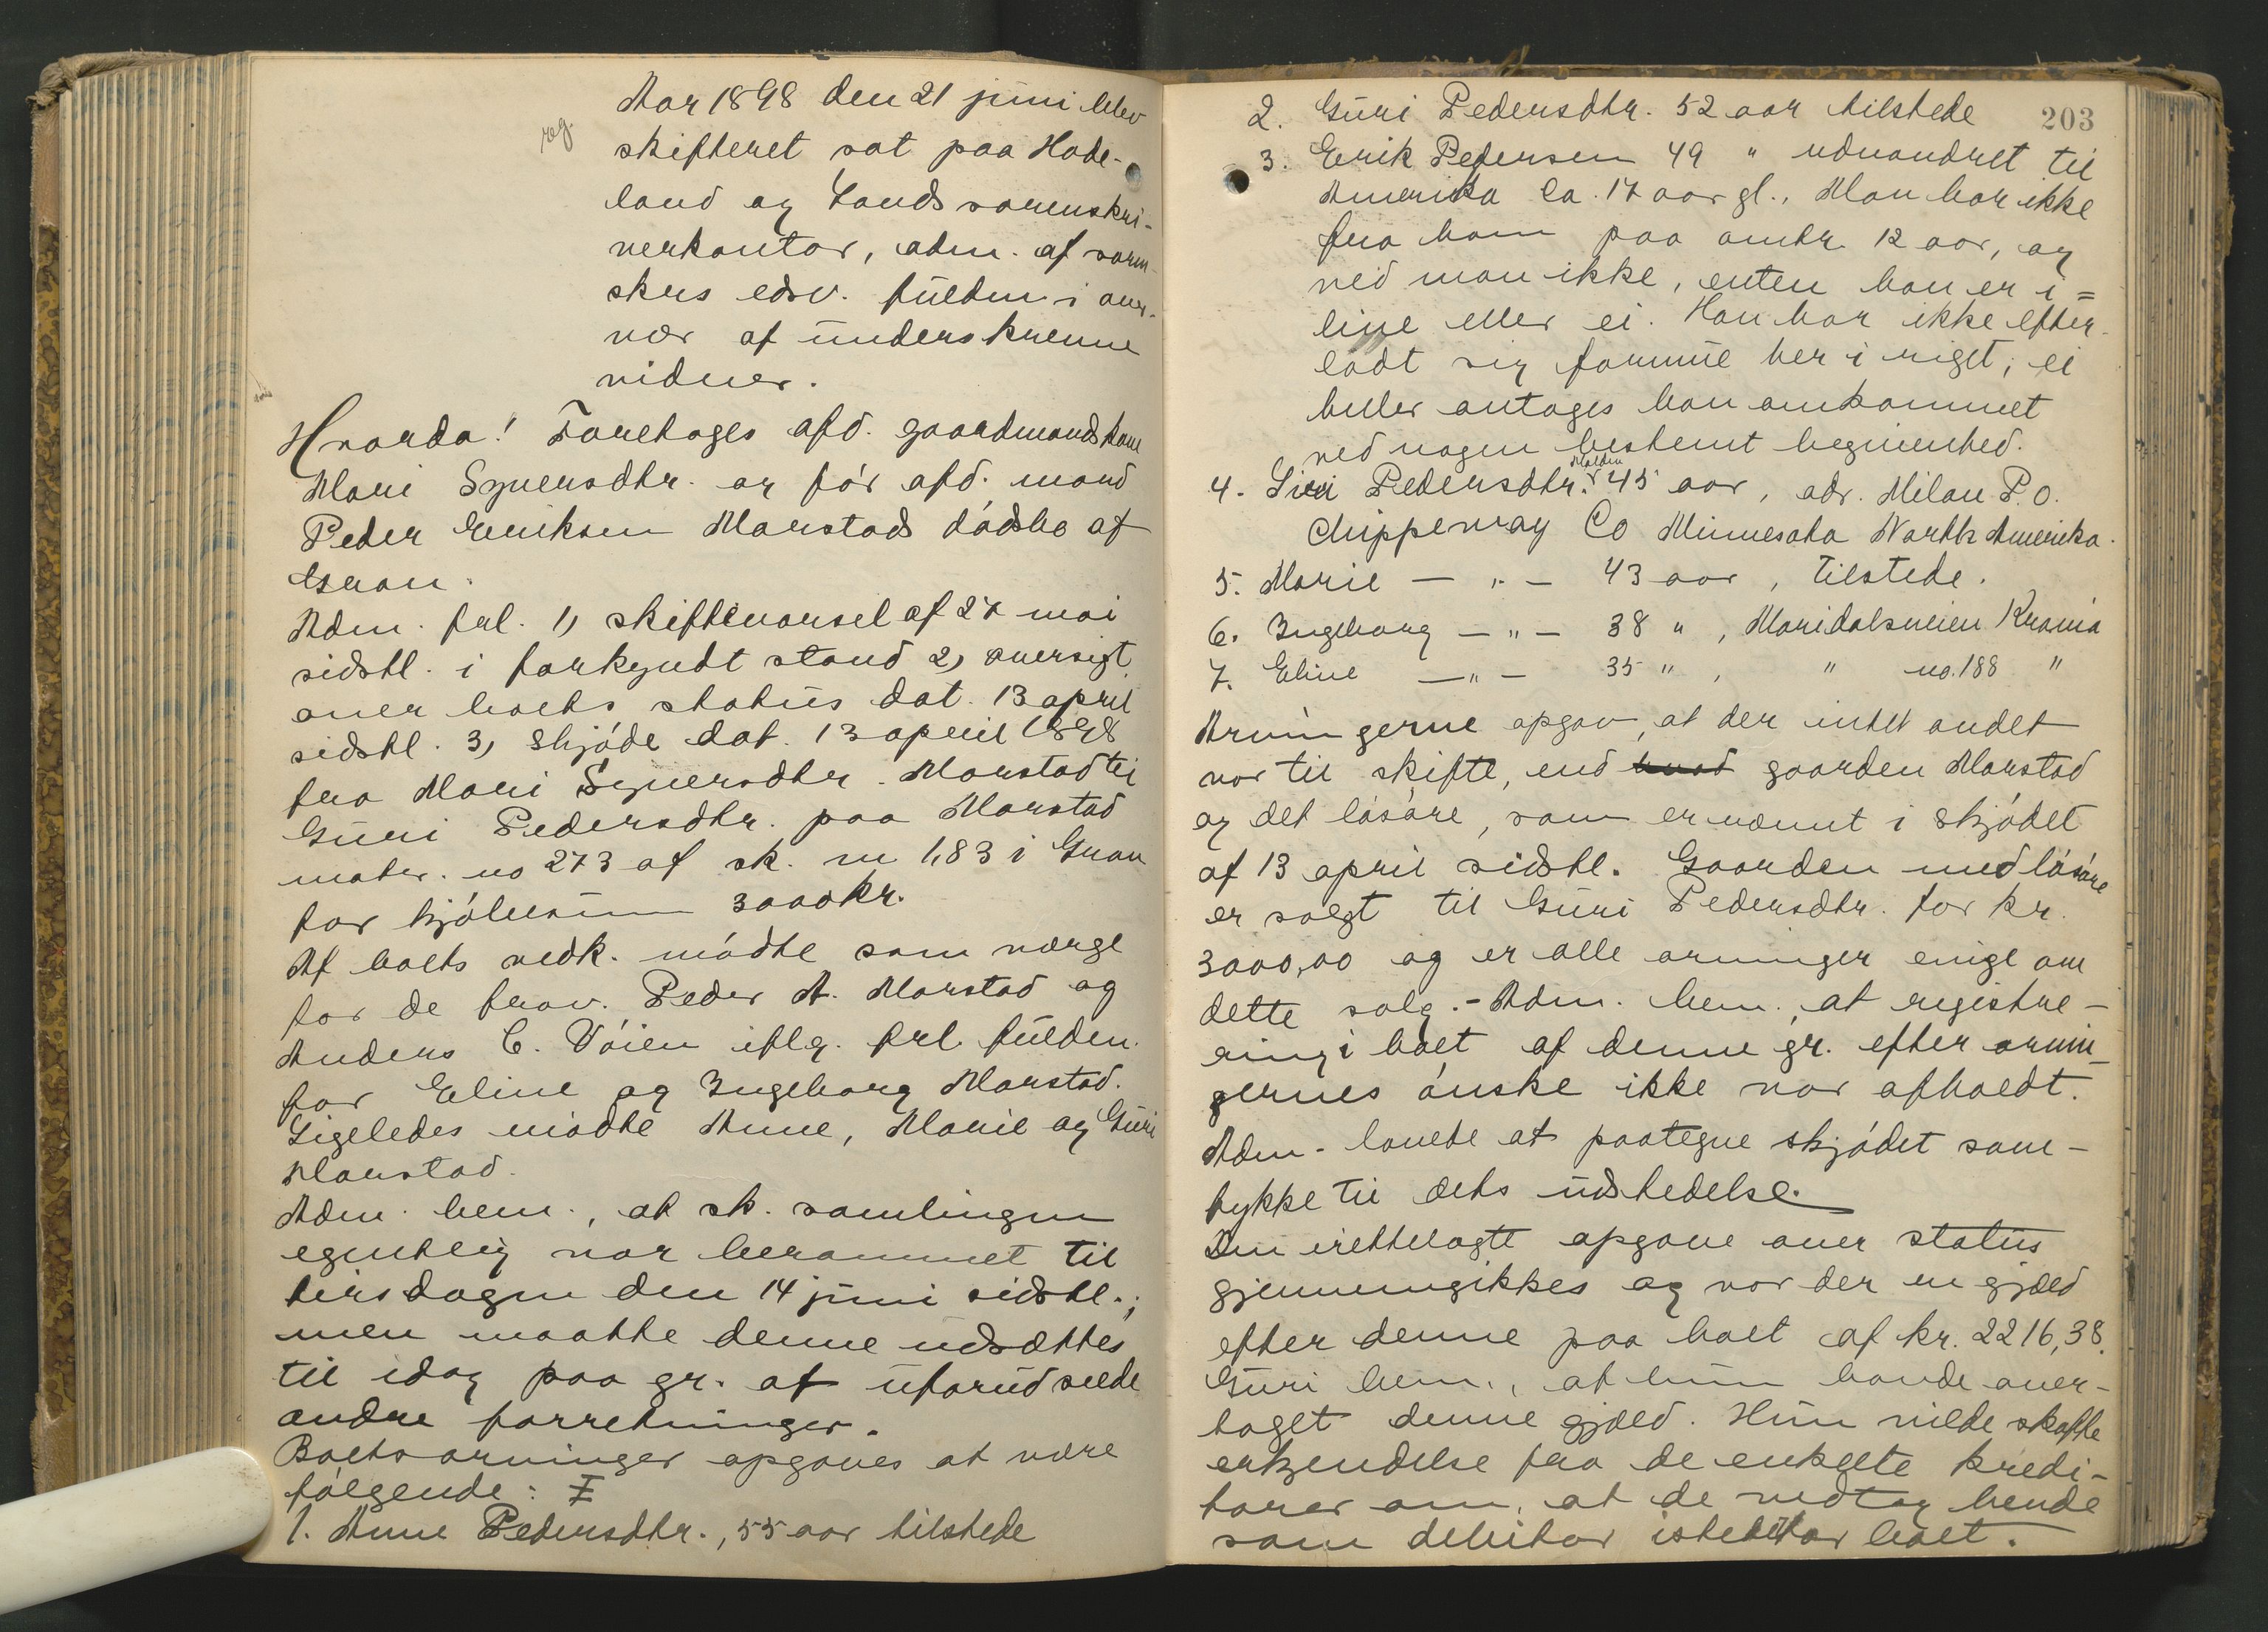 Aar 1898 den 21 juni blev
reg.
skifteret sat paa Hade-
land og Lands sorenskri-
verkontor, adm. af soren-
skrs edsv. fuldm. i over-
vær af underskrevne
vidner.
Hvorda! Foretoges afd. gaardmandskone
Mari Syversdtr. og før afd. mand
Peder Eriksen Marstads dødsbo af
Gran.
Adm. frl. 1, skiftevarsel af 27 mai
sidstl. i forkyndt stand 2, oversigt
over boets status dat. 13 april
sidstl. 3, skjøde dat. 13 april 1898
fra Mari Syversdtr. Marstad til
Guri Pedersdtr. paa Marstad
matr. no 273 af sk. m 1,83 i Gran
for kjøbesum 3000 kr.
Af boets vedk. mødte som værge
for de frav. Peder A. Marstad og
Anders C. Vøien iflg. frl. fuldm.
for Eline og Ingeborg Marstad.
Ligeledes mødte Anne, Marie og Guri
Marstad.
Adm. bem., at sk. samlingen
egentlig var berammet til
tirsdagen den 14 juni sidstl.;
men maatte denne udsættes
til idag paa gr. af uforudseede
andre forretninger.
Boets arvinger opgaves at være
følgende: I
1. Anne Pedersdtr., 55 aar tilstede
203
2. Guri Pedersdtr. 52 aar tilstede
3. Erik Pedersen 49 " udvandret til
Amerika ca. 17 aar gl., Man har ikke
fra ham paa omtr. 12 aar, og
ved man ikke, enten han er i=
live eller ei. Han har ikke efter-
ladt sig formue her i riget; ei
heller antages han omkommet
ved nogen bestemt begivenhed.
Malden
4. Siri Pedersdtr. 45 aar, adr. Milan P.O.
Chippeway Co Minnesota North Amerika.
5. Marie — " — 43 aar, tilstede.
6. Ingeborg — " — 38 ", Maridalsveien Krania
7. Eline — " — 35 ", " no. 188 "
Arvingerne opgav, at der intet andet
var til skifte, end hvad gaarden Marstad
og det løsøre, som er nævnt i skjødet
af 13 april sidstl. Gaarden med løsøre
er solgt til Guri Pedersdtr. for kr.
3000,00 og er alle arvinger enige om
dette salg. - Adm. bem., at registre-
ring i boet af denne gr. efter arvin-
gernes ønske ikke var afholdt.
Adm. lovede at paategne skjødet sam-
tykke til dets udstedelse.
Den irettelagte opgave over status
gjennemgikkes og var der en gjæld
efter denne paa boet af kr. 2216,38.
Guri bem., at hun havde over-
taget denne gjæld. Hun vilde skaffe
erkjendelse fra de enkelte kredi-
torer om, at de vedtog hende
som debitor istedetfor boet.